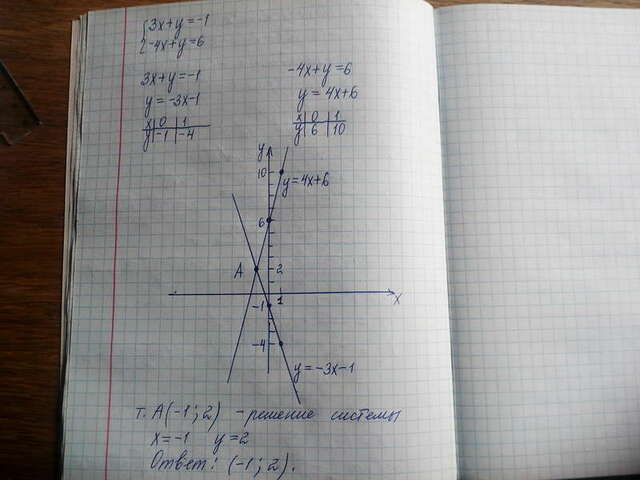 {3x+y=-1
-4x+y=6
3x+y=-1
y=-3x-1
x|0|1
y|-1|-4
-4x+y=6
y=4x+6
x|0|1
y|6|10
y
10
y=4x+6
6
A
2
x
-1
1
-4
y=-3x-1
т. A(-1;2) -решение системы
x=-1 y=2
Ответ: (-1;2).